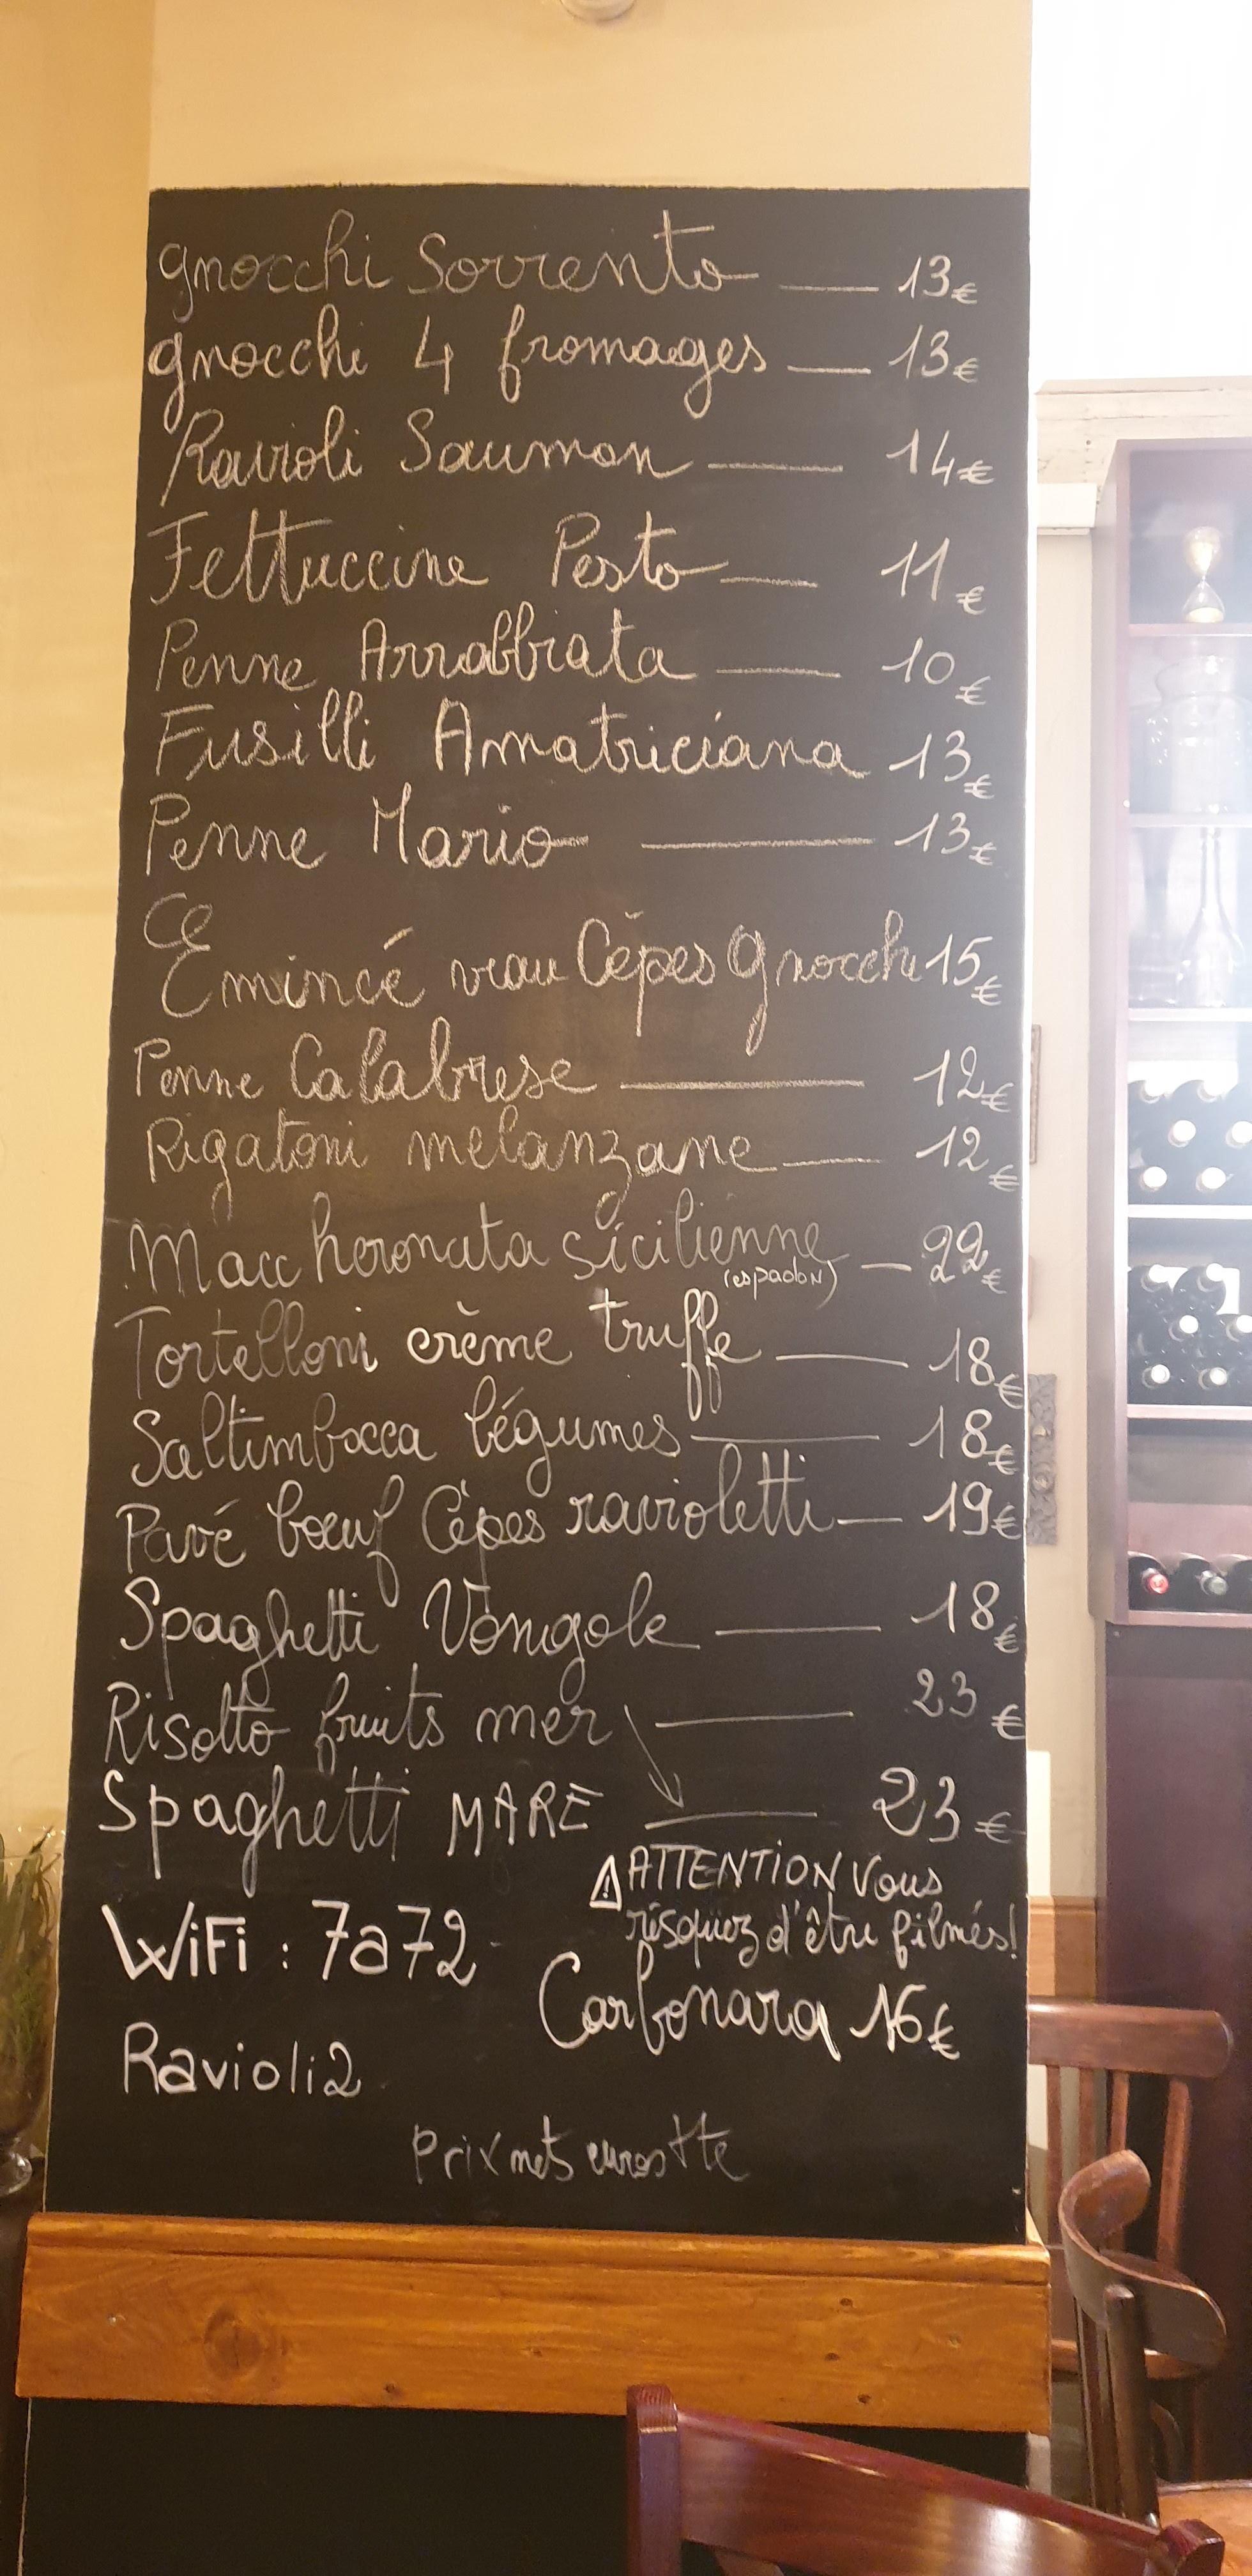 gnocchi Sorrento — 13€
gnocchi 4 fromages — 13€
Ravioli Saumon — 14€
Fettuccine Pesto — 11€
Penne Arrabbiata — 10€
Fusilli Amatriciana 13€
Penne Mario — 13€
Ce
Emincé veau Cèpes gnocchi 15€
Penne Calabrese — 12€
Rigatoni melanzane — 12€
Maccheronata sicilienne — 22€
(espadon)
Tortelloni crème truffe — 18€
Saltimbocca légumes — 18€
Pavé bœuf Cèpes ravioletti — 19€
Spaghetti Vongole — 18€
Risotto fruits mer — 23€
Spaghetti MARE — 23€
⚠ ATTENTION Vous
risquez d'être filmés!
WiFi : 7a72
Carbonara 16€
Ravioli2
Prix nets euros ttc